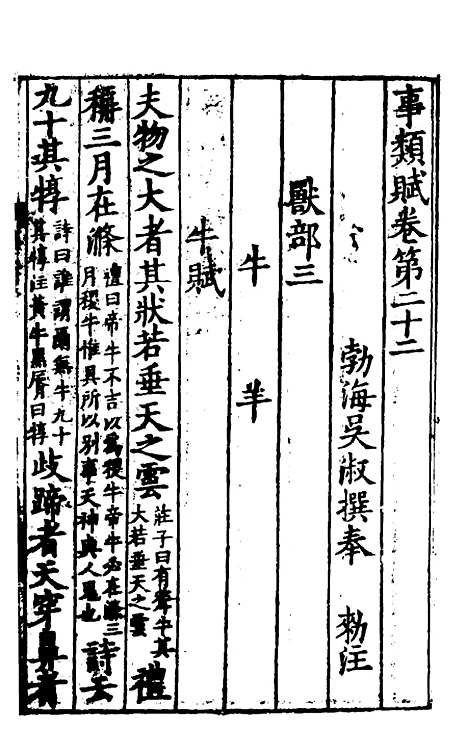 事類賦卷第二十二
勃海吳淑撰奉　敕注
獸部三
牛　羊
牛賦
夫物之大者其狀若垂天之雲莊子曰有犛牛其大若垂天之雲禮
稱三月在滌禮曰帝牛不吉以爲稷牛帝牛必在滌三月稷牛惟具所以別事天神與人鬼也詩云
九十其犉詩曰誰謂爾無牛九十其犉注黃牛黑脣曰犉歧蹄者天穿鼻者